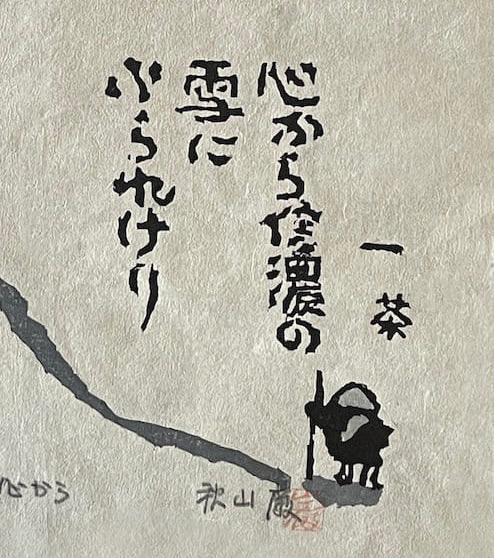 一茶
心から信濃の
雪に
ふられけり
心から
秋山巌